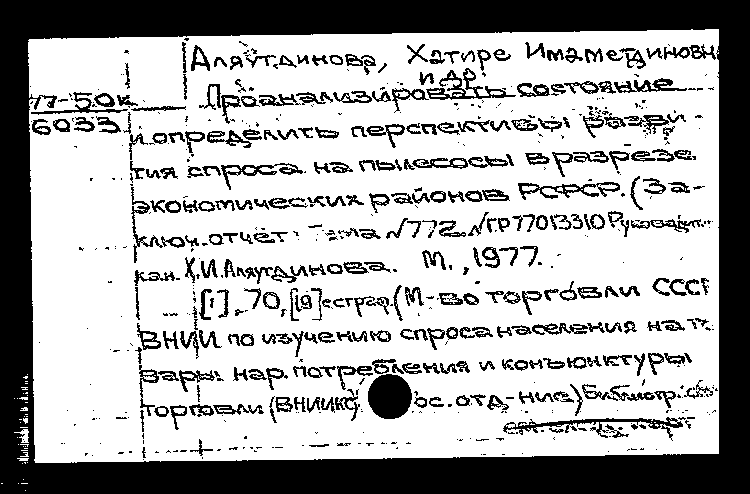 Аляутдинова, Хатире Имаметдиновна
и др.
77-50к
6033
Проанализировать состояние
и определить перспективы разви-
тия спроса на пылесосы в разрезе
экономических районов РСФСР. (За-
ключ. отчёт: Тема №772. №ГР77013310 Руководит.
кан. Х.И.Аляутдинова. М., 1977.
[1], 70, [19] (М-во торговли СССР
ВНИИ по изучению спроса населения на то-
вары нар. потребления и конъюнктуры
торговли (ВНИИКС) ос. отд-ние) Библиогр.: